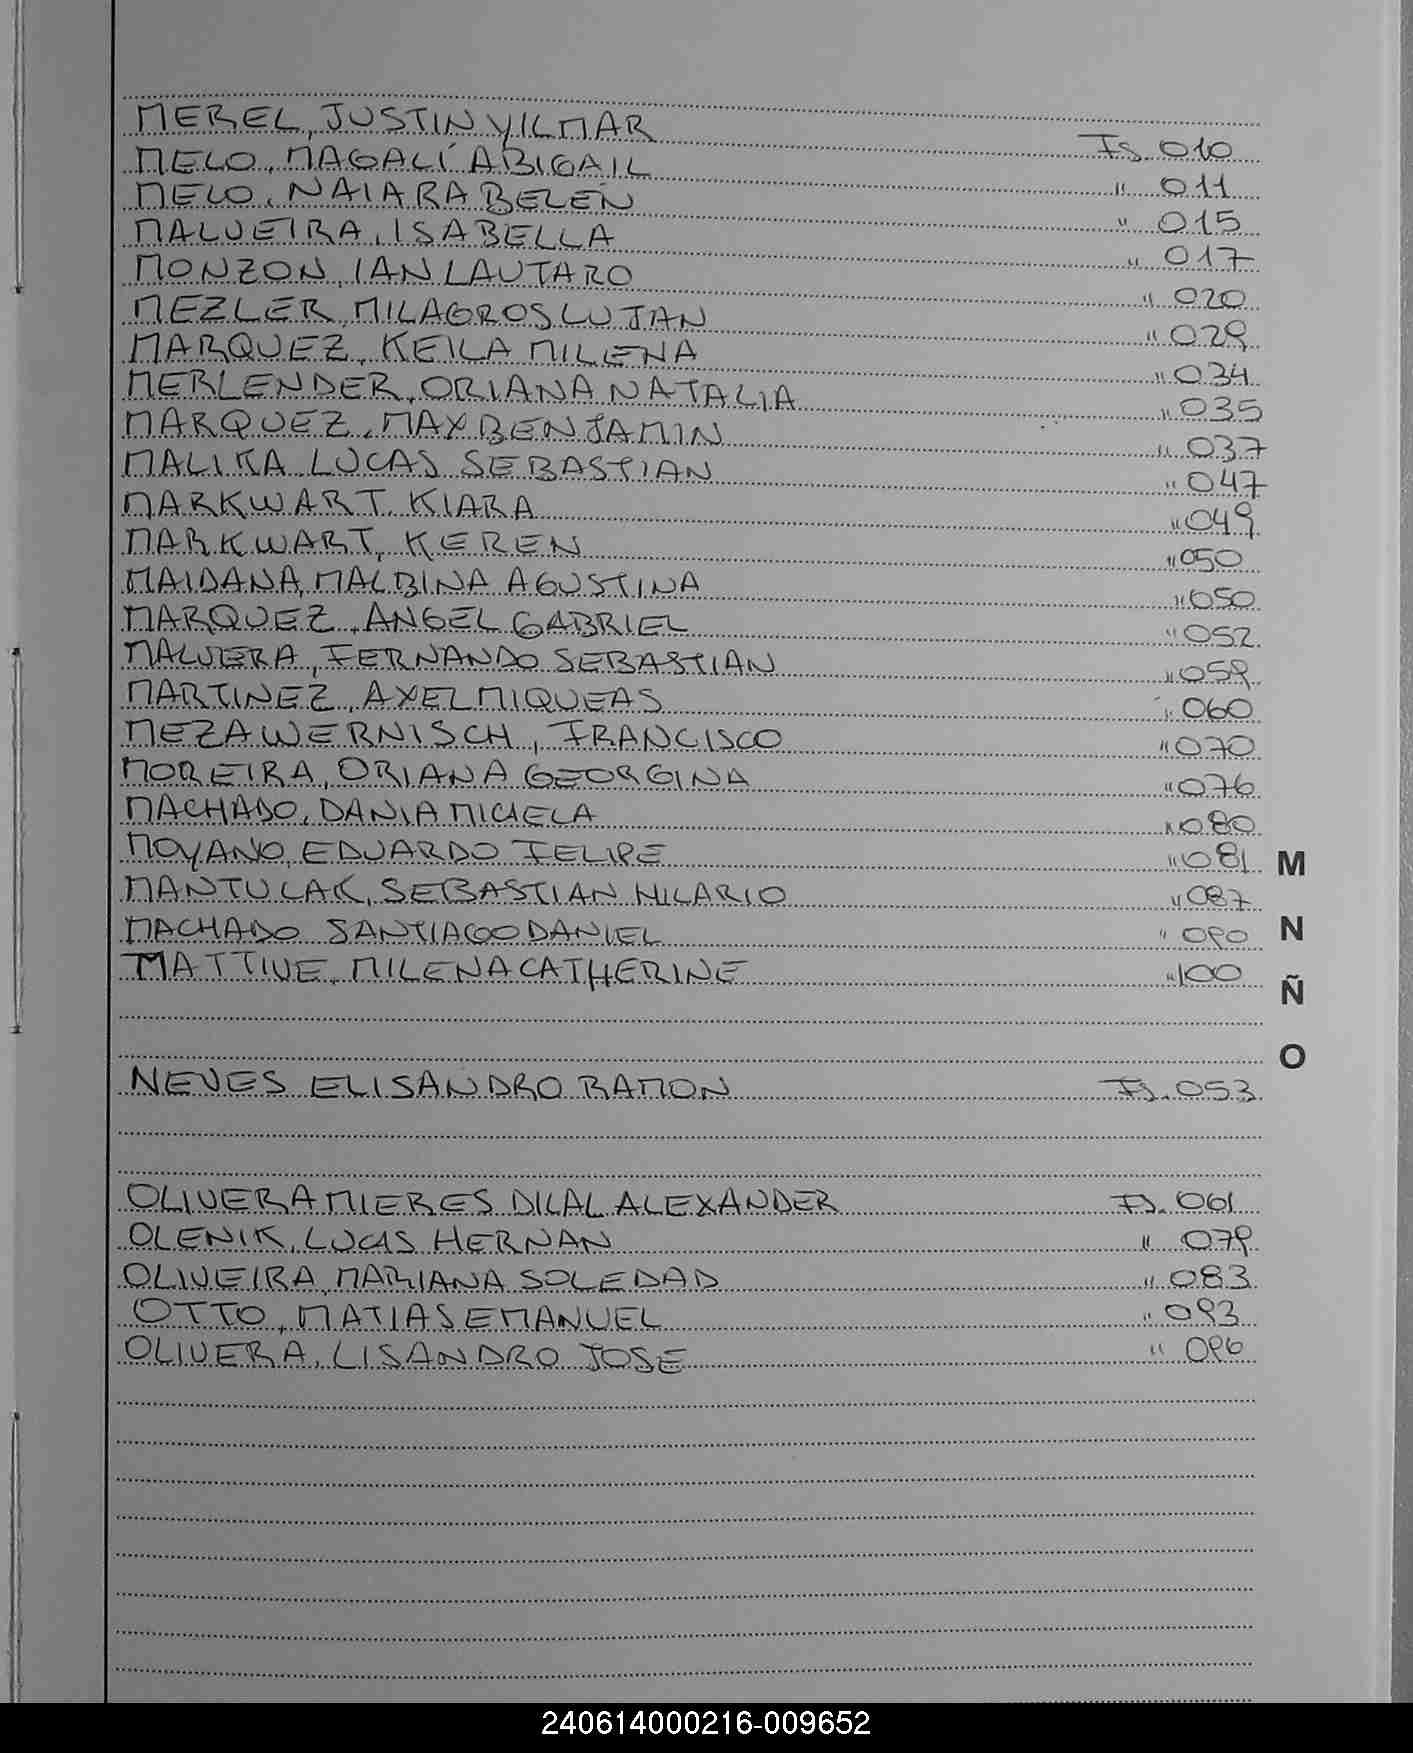 MEREL, JUSTIN YILMAR Fs. 010
MELO, MAGALÍ ABIGAIL " 011
MELO, NAIARA BELÉN " 015
MALVEIRA, ISABELLA " 017
MONZON, IAN LAUTARO " 020
MEZLER, MILAGROS LUJAN " 029
MARQUEZ, KEILA MILENA " 034
MERLENDER, ORIANA NATALIA " 035
MARQUEZ, MAX BENJAMIN " 037
MALIKA LUCAS SEBASTIAN " 047
MARKWART, KIARA " 049
MARKWART, KEREN " 050
MAIDANA, MALBINA AGUSTINA " 050
MARQUEZ, ANGEL GABRIEL " 052
MALVERA, FERNANDO SEBASTIAN " 059
MARTINEZ, AXEL MIQUEAS " 060
MEZA WERNISCH, FRANCISCO " 070
MOREIRA, ORIANA GEORGINA " 076
MACHADO, DANIA MICAELA " 080
MOYANO, EDUARDO FELIPE " 081
MANTULAK, SEBASTIAN HILARIO " 087
MACHADO SANTIAGO DANIEL " 090
MATTIVE, MILENA CATHERINE " 100
NEVES ELISANDRO RAMON Fs. 053
OLIVERA MIERES DILAL ALEXANDER Fs. 061
OLENIK, LUCAS HERNAN " 079
OLIVEIRA, MARIANA SOLEDAD " 083
OTTO, MATIAS EMANUEL " 093
OLIVERA, LISANDRO JOSE " 096
M
N
Ñ
O
240614000216-009652